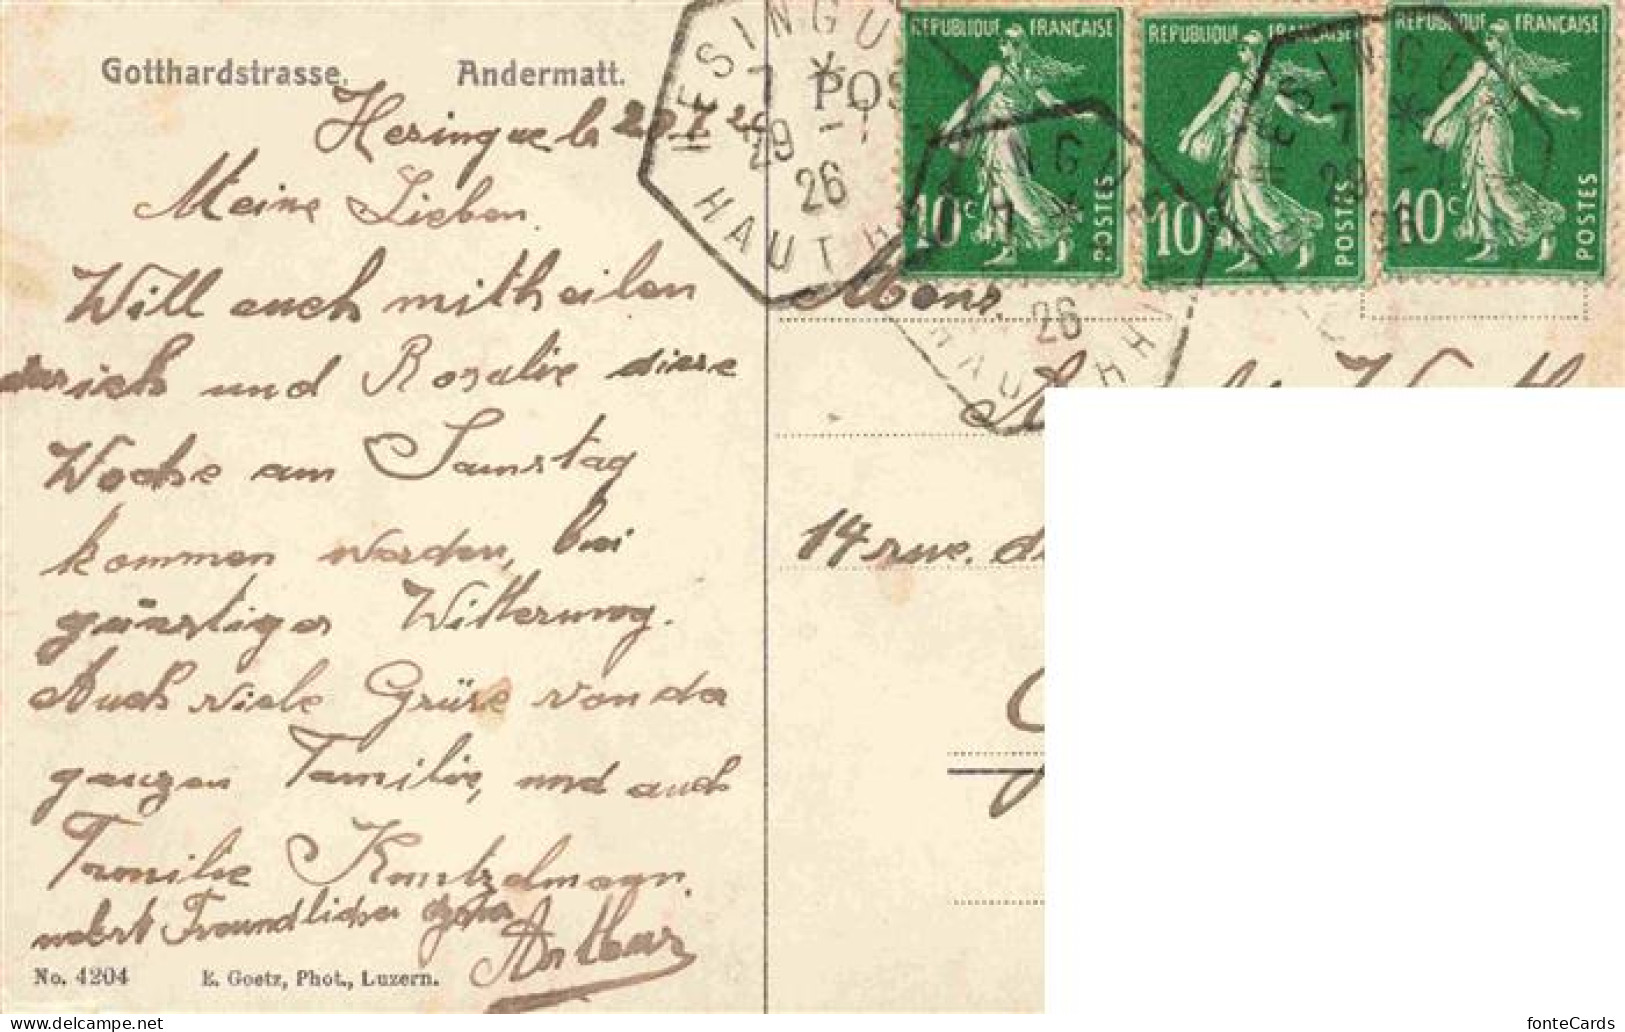 Gotthardstrasse. Andermatt.
Hesingue le 29.7.26
Meine Lieben.
Will euch mitheilen
das ich und Rosalie diese
Woche am Samstag
kommen werden, bei
günstiger Witterung.
Auch viele Grüse von der
ganzen Familie, und auch
Familie Kuntzelmann.
nebst Freundlicher
Arthur
No. 4204 E. Goetz, Phot., Luzern.
HESINGUE
7 *
29 - 7
26
HAUT RHIN
POS
REPUBLIQUE FRANÇAISE
10c
POSTES
REPUBLIQUE FRANÇAISE
10c
POSTES
REPUBLIQUE FRANÇAISE
10c
POSTES
HESINGUE
7 *
26
HAUT RHIN
HESINGUE
7 *
29 - 7
26
Mons.
14 rue. d
fonteCards